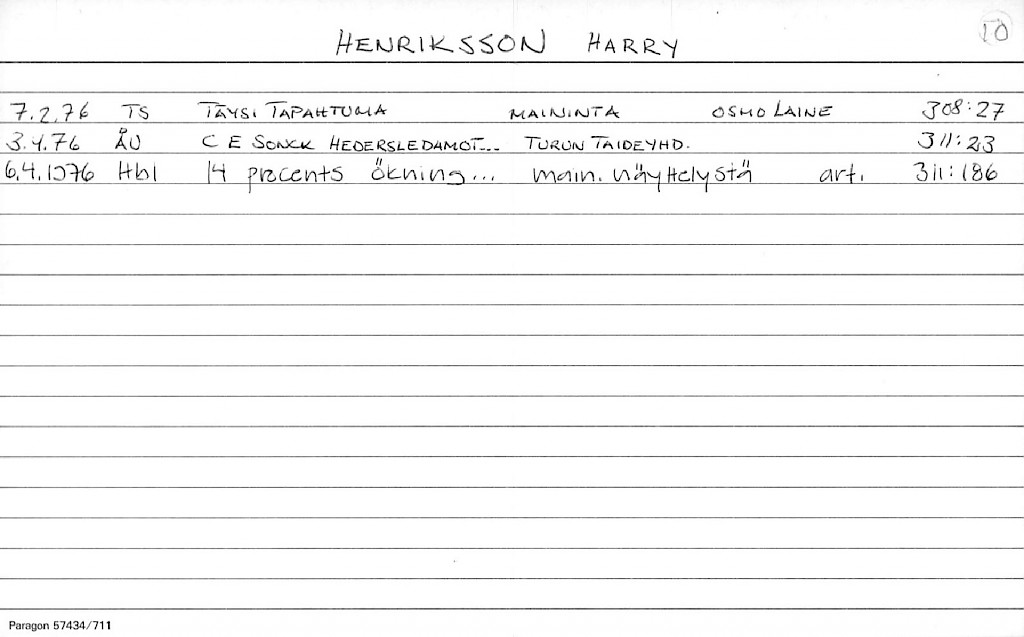 HENRIKSSON HARRY 10
7.2.76 TS TÄYSI TAPAHTUMA MAININTA OSMO LAINE 308:27
3.4.76 ÅU C E SONCK HEDERSLEDAMOT... TURUN TAIDEYHD. 311:23
6.4.1976 Hbl 14 procents ökning... main. näyttelystä art. 311:186
Paragon 57434/711